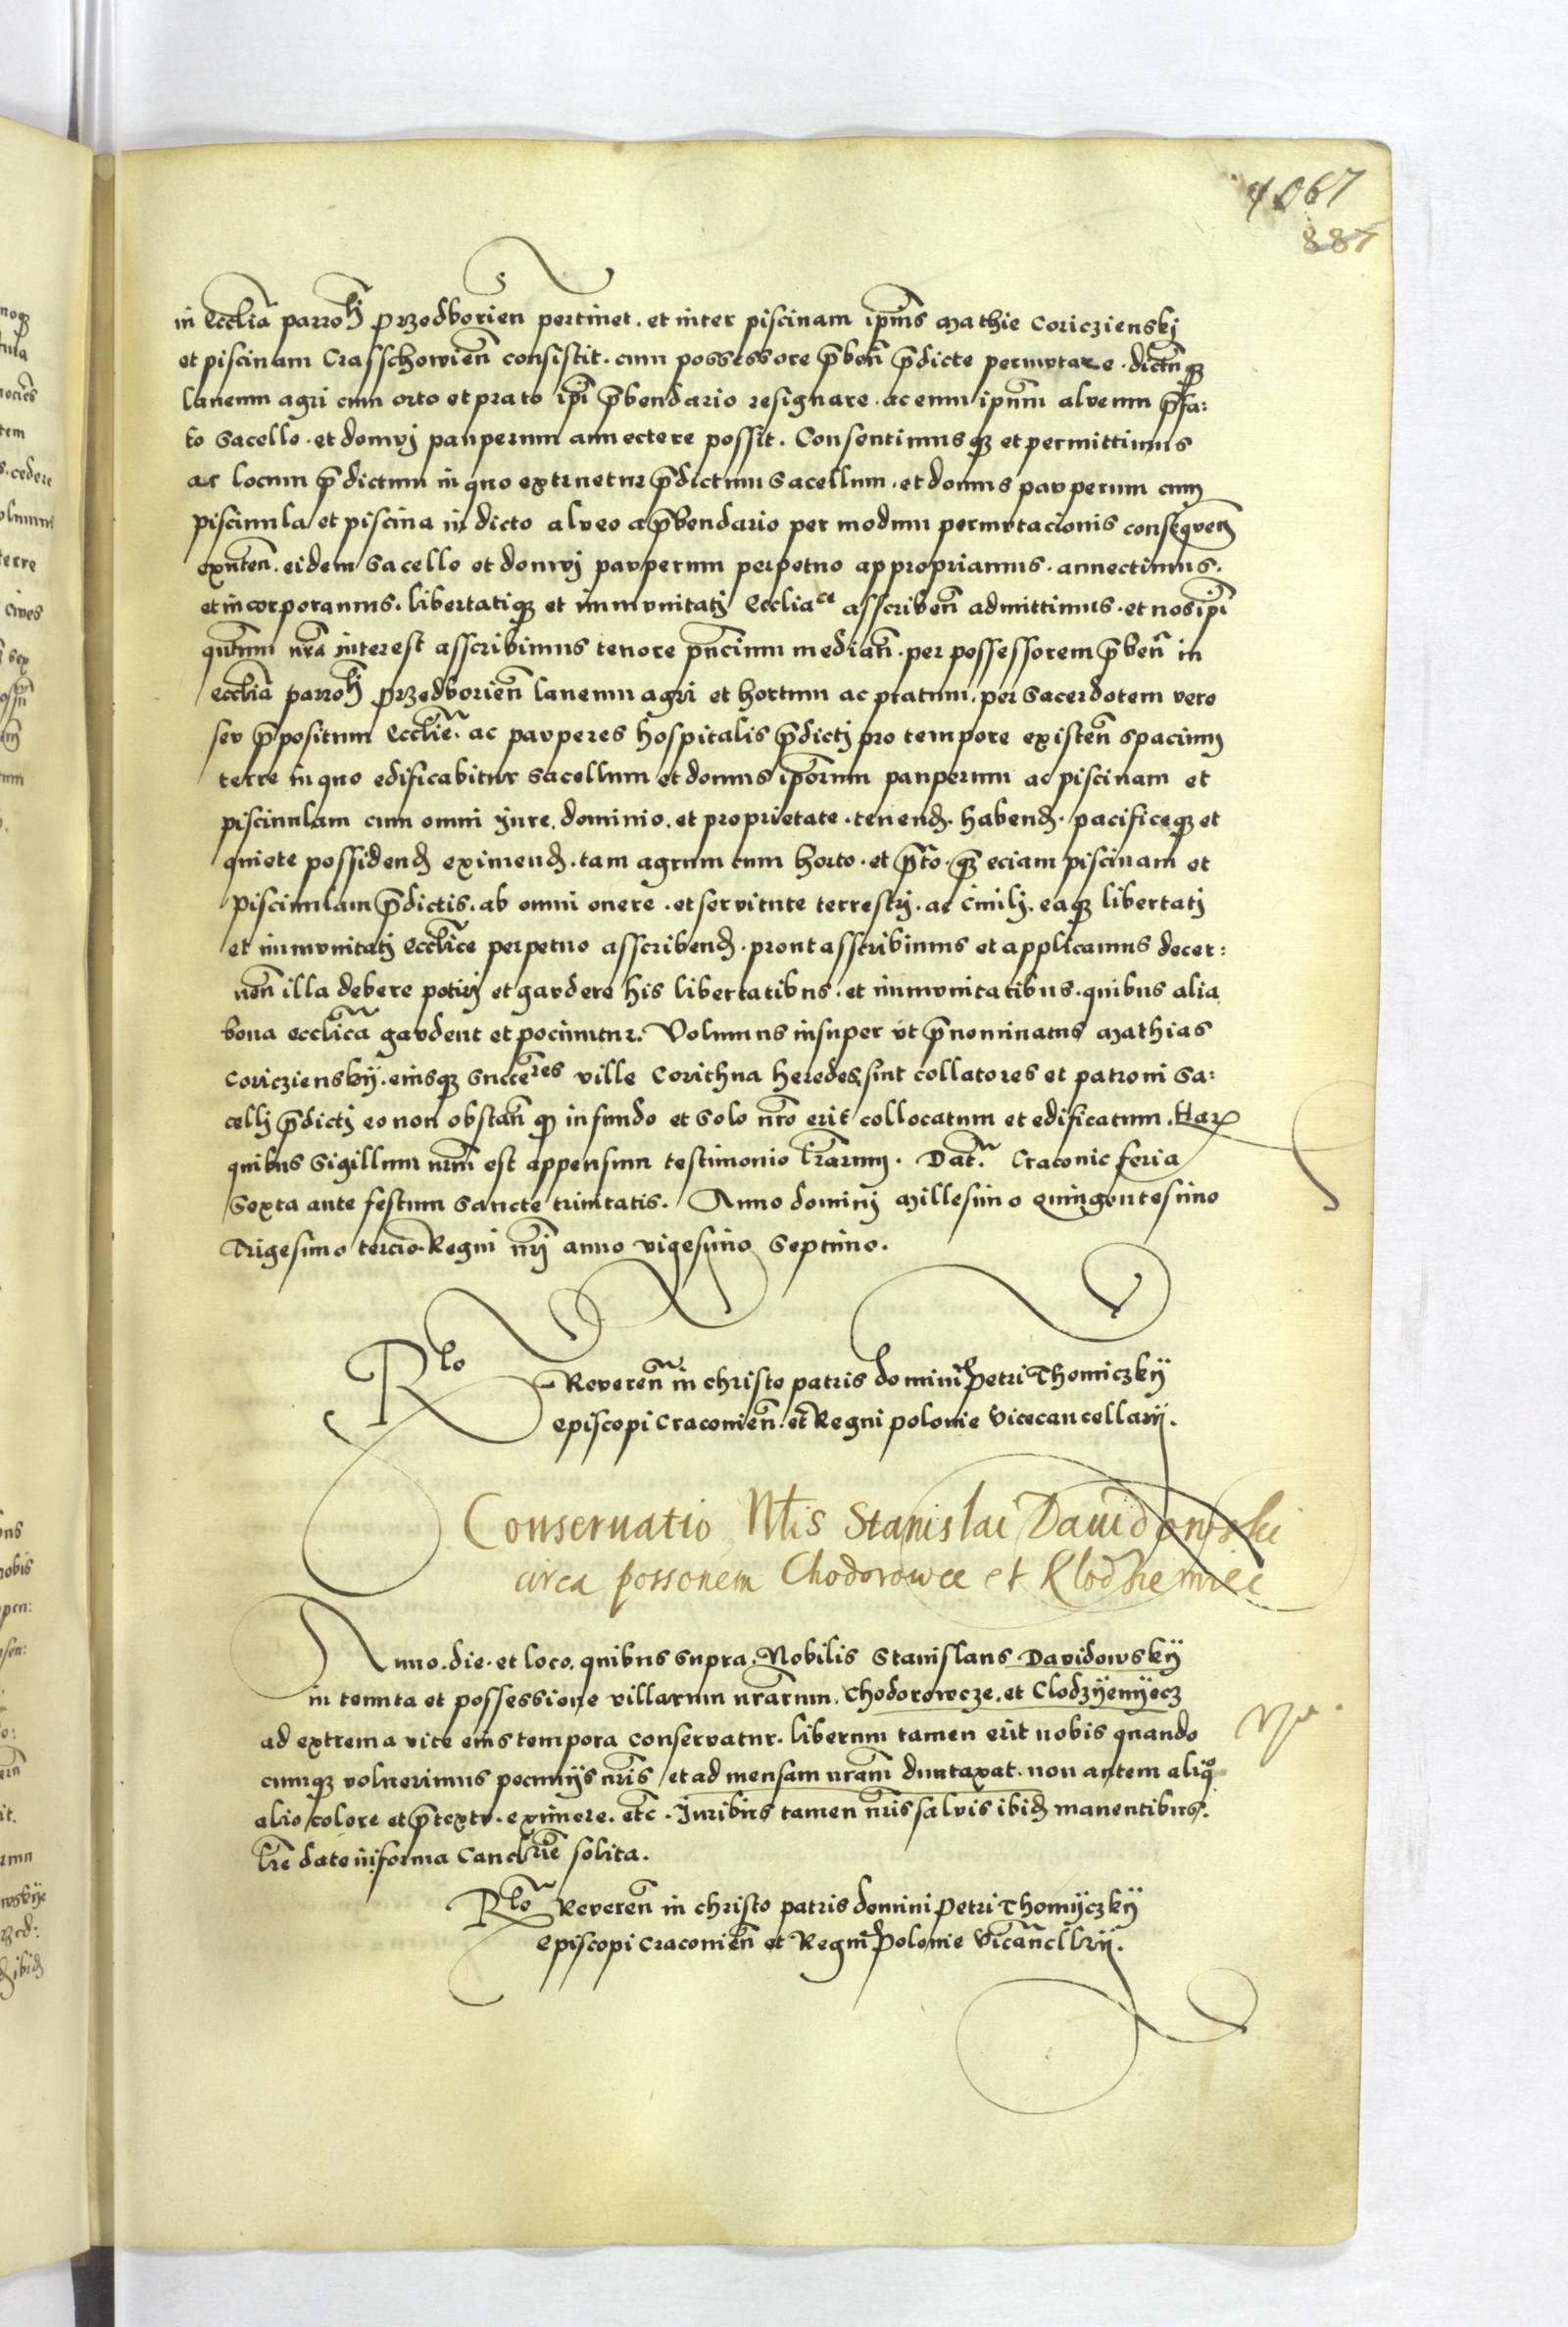 4067
887
in Ecclia parroh przedborien pertinet . et inter piscinam ipius Mathie Coriczienskj
et piscinam Crasschowien consistit . cum possessore prben prdicte permutare . dictumqz
laneum agri cum orto et prato ipi prbendario resignare . ac eum ipum alveum prfa:
to sacello . et domuj pauperum annectere possit . Consentimusqz et permittimus
ac locum prdictum in quo extruetur prdictum sacellum . et domus pauperum cum
piscinula et piscina in dicto alveo a prbendario per modum permutacionis consequen
exnten . eidem sacello et domuj pauperum perpetuo appropriamus . annectimus .
et incorporamus . libertatiqz et immunitatj Eccliace asscriben admittimus . et nos ipi
qntum nra interest asscribimus tenore pncium median . per possessorem prben in
ecclia parroh przedborien laneum agri et hortum ac pratum . per sacerdotem vero
seu prpositum Ecclie . ac pauperes hospitalis prdictj pro tempore existen spacium
terre in quo edificabitur sacellum et domus iporum pauperum ac piscinam et
piscinulam cum omni iure . dominio . et proprietate . tenend . habend . pacificeqz et
quiete possidend eximend . tam agrum cum horto . et prto . qz eciam piscinam et
piscinulam prdictis . ab omni onere . et servitute terrestrj . ac civilj . eaqz libertatj
et immunitatj ecclice perpetuo asscribend . prout asscribimus et applicamus decer:
nen illa debere potirj et gaudere his libertatibus . et immunitatibus . quibus alia
bona ecclica gaudent et pociuntur . Volumus insuper ut prnominatus Mathias
Coriczienskij . eiusqz succeres ville Corithna heredes sint collatores et patroni sa:
cellj prdictj eo non obstan qz in fundo et solo nro erit collocatum et edificatum . Har
quibus sigillum nrm est appensum testimonio lrarum . Dat . Craconie feria
sexta ante festum sancte trinitatis . Anno dominj Millesimo quingentesimo
Trigesimo tercio . Regni nrj anno vigesimo septimo .
Rlo Reveren in christo patris domini Petri Thomiczkij
episcopi Craconien . et Regni polonie vicecancellarij .
Conseruatio Nlis Stanislai Dauidowski
circa possonem Chodorowce et Klodziemiec
Anno . die . et loco . quibus supra . Nobilis Stanislaus Davidowskij
in tenuta et possessione villarum nrarum . Chodorowcze . et Clodzijemijecz
ad extrema vite eius tempora conservatur . liberum tamen erit nobis quando
cumqz voluerimus pecunijs nris et ad mensam nram duntaxat . non autem aliqo
alio colore et prtextu . eximere . etc . Juribus tamen nris salvis ibid manentibus .
lre date in forma Cancrie solita .
Rlo Reveren in christo patris domini Petri Thomijczkij
episcopi Craconien et Regni Polonie Vicancllrij .